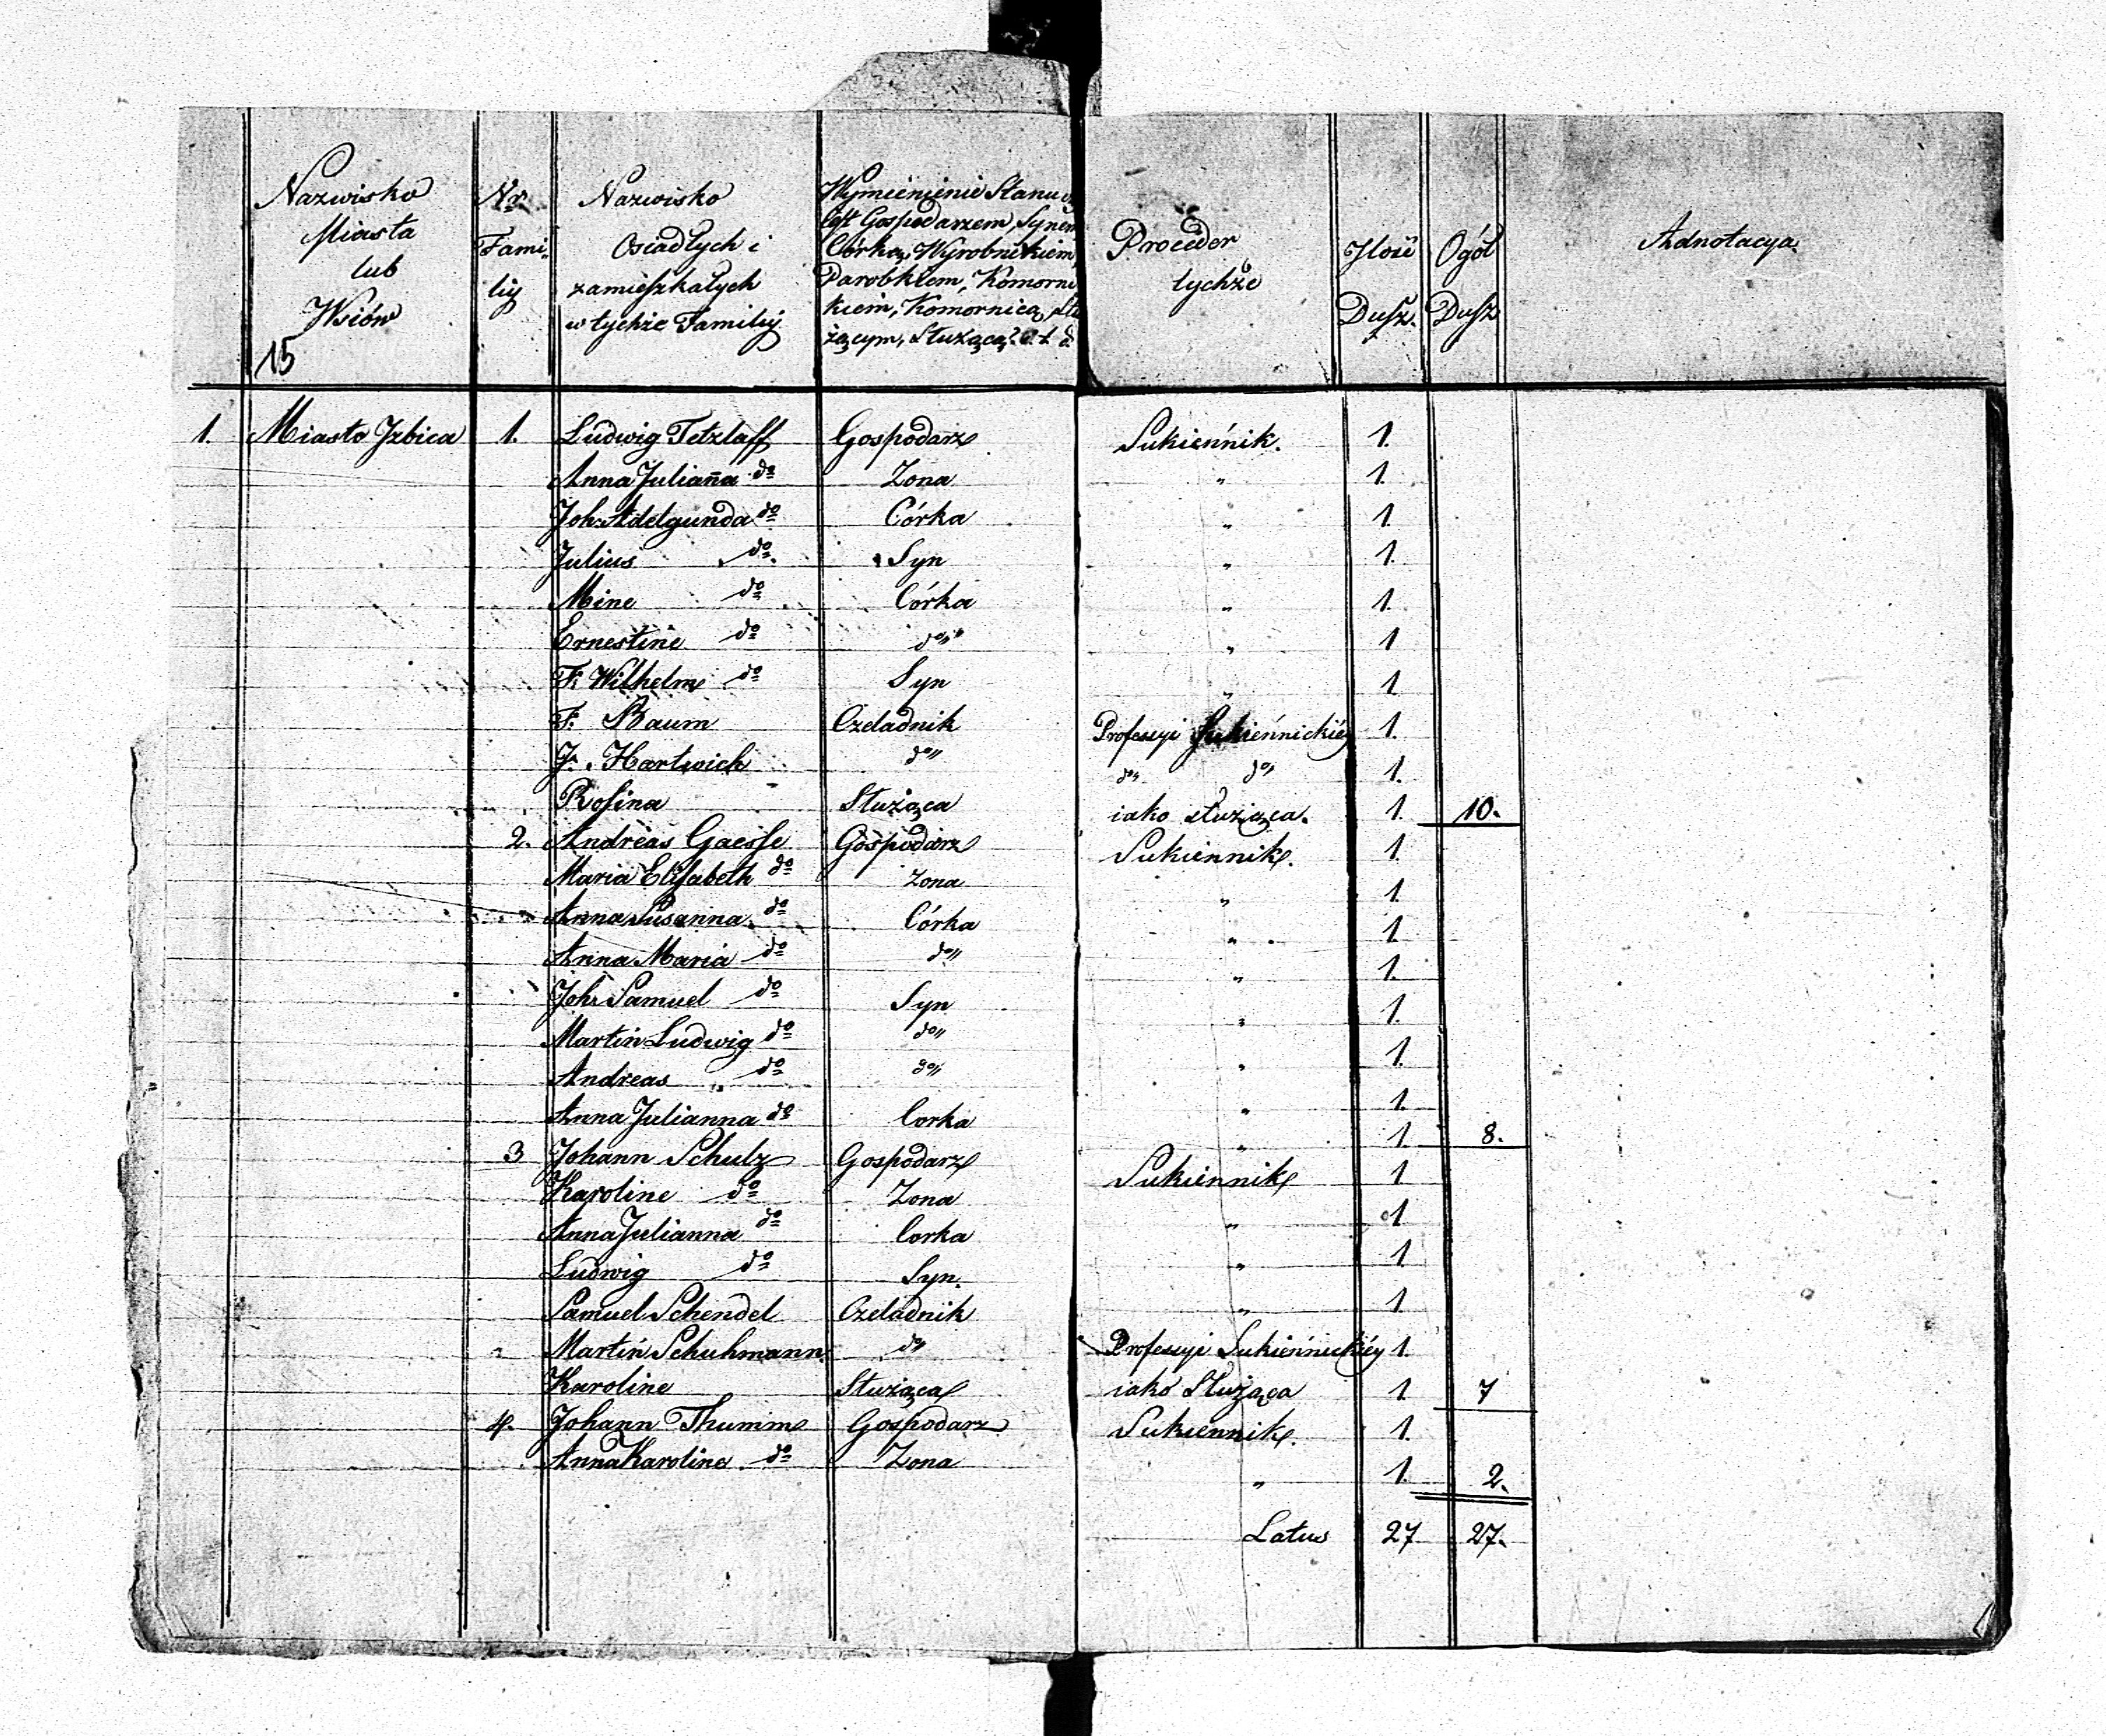 Nazwisko Miasta lub Wsiów
Nr Familij
Nazwisko Osiadłych i zamieszkałych w tychże Familij
Wymienienie Stanu
Gospodarzem, Synem
Córką, Wyrobnikiem,
Parobkiem, Komorni
kiem, Komornicą, Słu
żącym, Służącą? e. t. d.
Proceder tychże
Jlość Dusz.
Ogół Dusz
Adnotacya.
15
1. Miasto Jzbica 1. Ludwig Tetzlaff Gospodarz Sukiennik. 1.
Anna Julianna do Zona " 1.
Joh: Adelgunda do Córka " 1.
Julius do Syn " 1.
Mine do Córka " 1.
Ernestine do do " 1
F. Wilhelm do Syn " 1
F. Baum Czeladnik Professyi Sukiennickiéy 1.
J. Hartwich do do do 1.
Rosina Służąca iako służąca. 1. 10.
2. Andreas Gaesse Gospodarz Sukiennik. 1.
Maria Elisabeth do Zona " 1.
Anna Susanna do Córka " 1.
Anna Maria do do " 1.
Joh: Samuel do Syn " 1.
Martin Ludwig do do " 1.
Andreas do do " 1.
Anna Julianna do Corka " 1. 8.
3 Johann Schulz Gospodarz Sukiennik 1
Karoline do Zona " 1
Anna Julianna do Corka " 1
Ludwig do Syn. " 1
Samuel Schendel Czeladnik
Martin Schuhmann do Professyi Sukiennickiéy 1.
Karoline Służąca iako Służąca 1 7
4. Johann Thumm Gospodarz Sukiennik. 1.
Anna Karoline do Zona " 1. 2.
Latus 27 27.